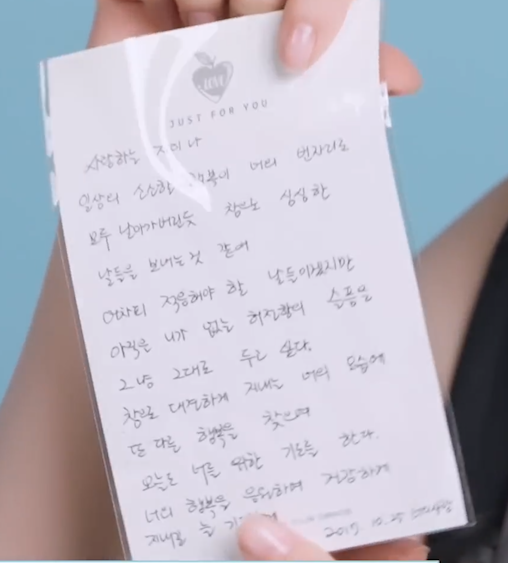 LOVE
JUST FOR YOU
사랑하는 지미나
일상의 소소한 행복이 너의 빈자리로
모두 날아가버린듯 참으로 심심한
날들을 보내는것 같애
어차피 적응해야 할 날들이겠지만
아직은 니가 없는 허전함의 슬픔을
그냥 그대로 두고 싶다.
참으로 대견하게 지내는 너의 모습에
또 다른 행복을 찾으며
오늘도 너를 위한 기도를 한다.
너의 행복을 응원하며 건강하게
지내길 늘
2017. 10. 25